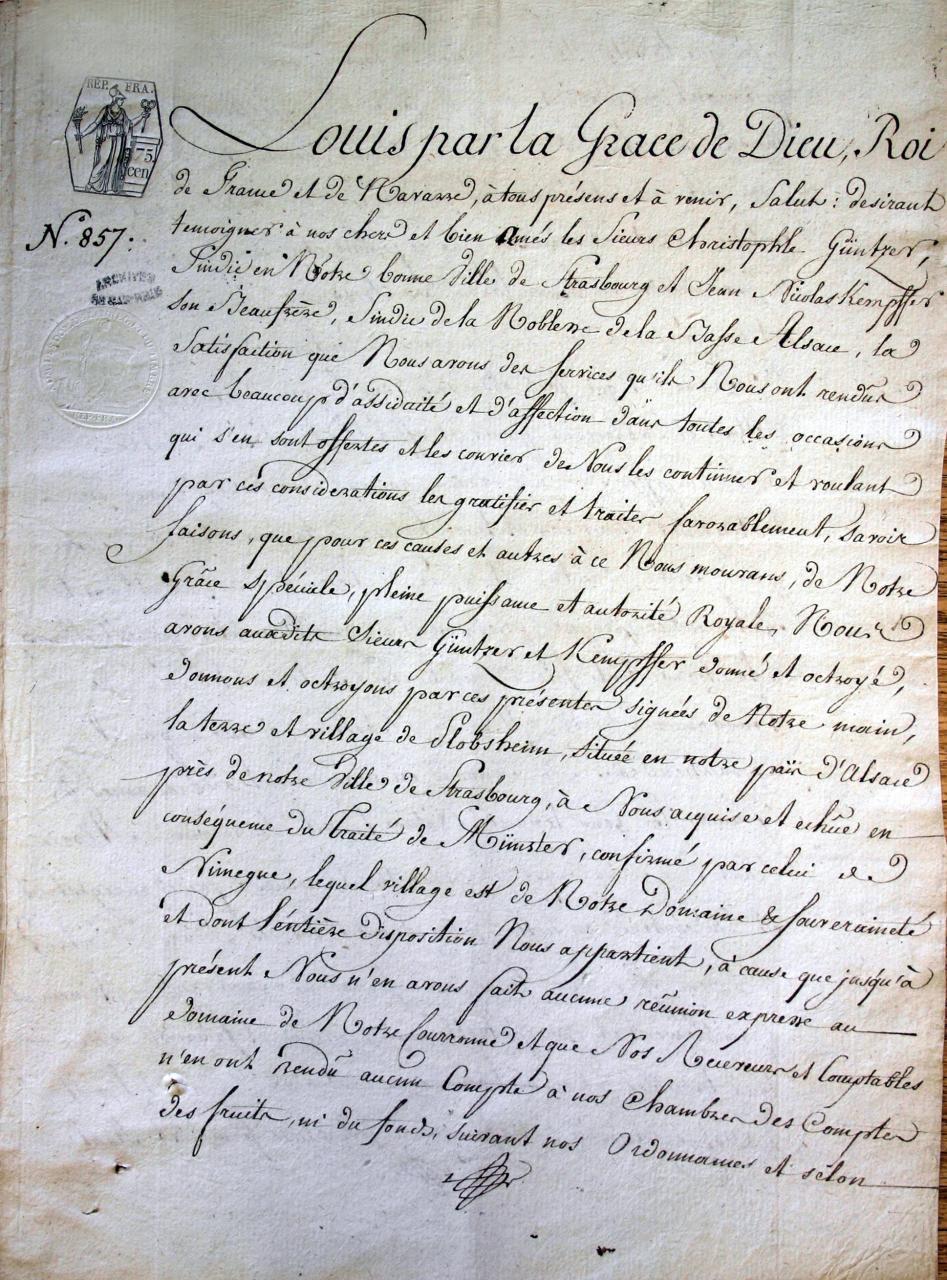 REP. FRA.
75.
cen
N.° 857.
ARCHIVES
DU BAS-RHIN
Louis par la Grace de Dieu, Roi
de France et de Navarre, à tous présens et à venir, Salut : desirant
temoigner à nos chers et bien amés les Sieurs Christophle Güntzer,
Sindic en Notre bonne Ville de Strasbourg et Jean Nicolas Kempffer
son Beaufrère, Sindic de la Noblesse de la Basse Alsace, la
Satisfaction que Nous avons des Services qu'ils Nous ont rendus
avec beaucoup d'assiduité et d'affection dans toutes les occasions
qui s'en sont offertes et les convier de Nous les continuer et voulant
par ces considerations les gratifier et traiter favorablement, savoir
faisons, que pour ces causes et autres à ce Nous mouvans, de Notre
Grâce Spéciale, pleine puissance et autorité Royale, Nous
avons auxdits Sieurs Güntzer et Kempffer donné et octroyé,
donnons et octroyons par ces présentes signées de Notre main,
la terre et village de Plobsheim, Située en notre païs d'Alsace
près de notre Ville de Strasbourg, à Nous acquise et echüe en
conséquence du Traité de Münster, confirmé par celui de
Nimegue, lequel village est de Notre Domaine & Souveraineté
et dont l'entière disposition Nous appartient, à cause que jusqu'à
présent Nous n'en avons fait aucune réunion expresse au
domaine de Notre Couronne et que Nos Receveurs et Comptables
n'en ont rendu aucun Compte à nos Chambres des Comptes
des fruits, ni du fonds, suivant nos Ordonnances et selon